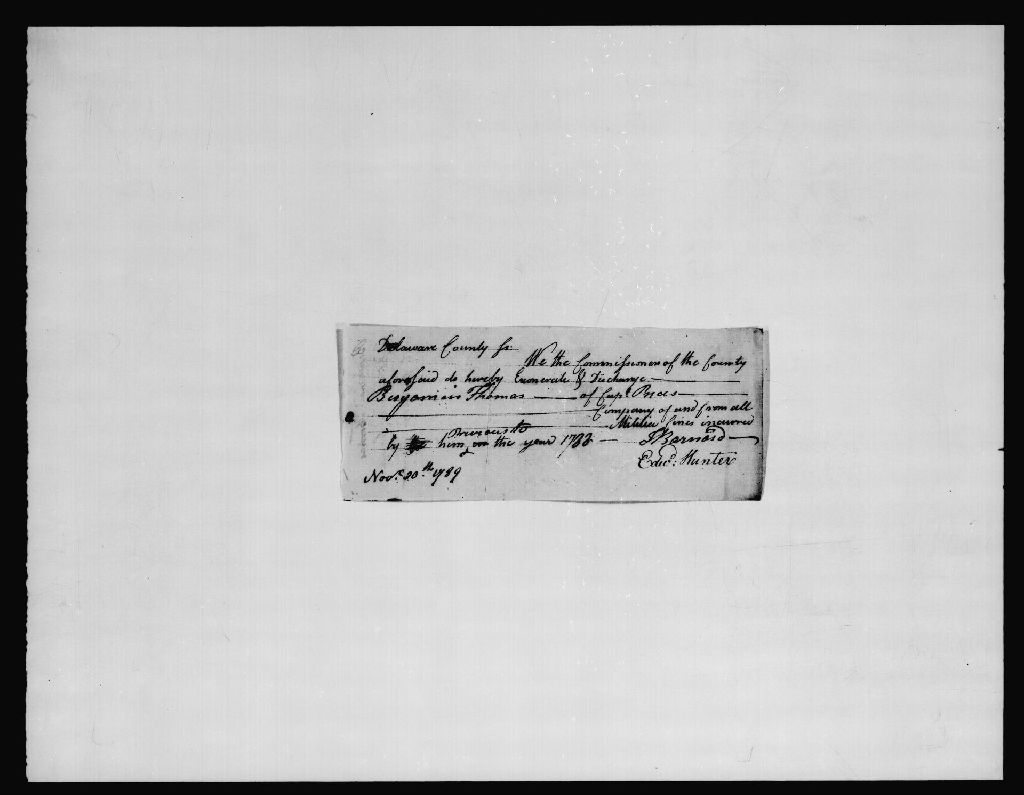 Delaware County ss:
We the Commissioners of the County
aforesaid do hereby Exonerate & Discharge
Benjamin Thomas of Capt. Prices
Company of and from all
Militia fines incurred
Previous to
by him the year 1783 J Barnard
Edwd. Hunter
Novr. 20th 1789